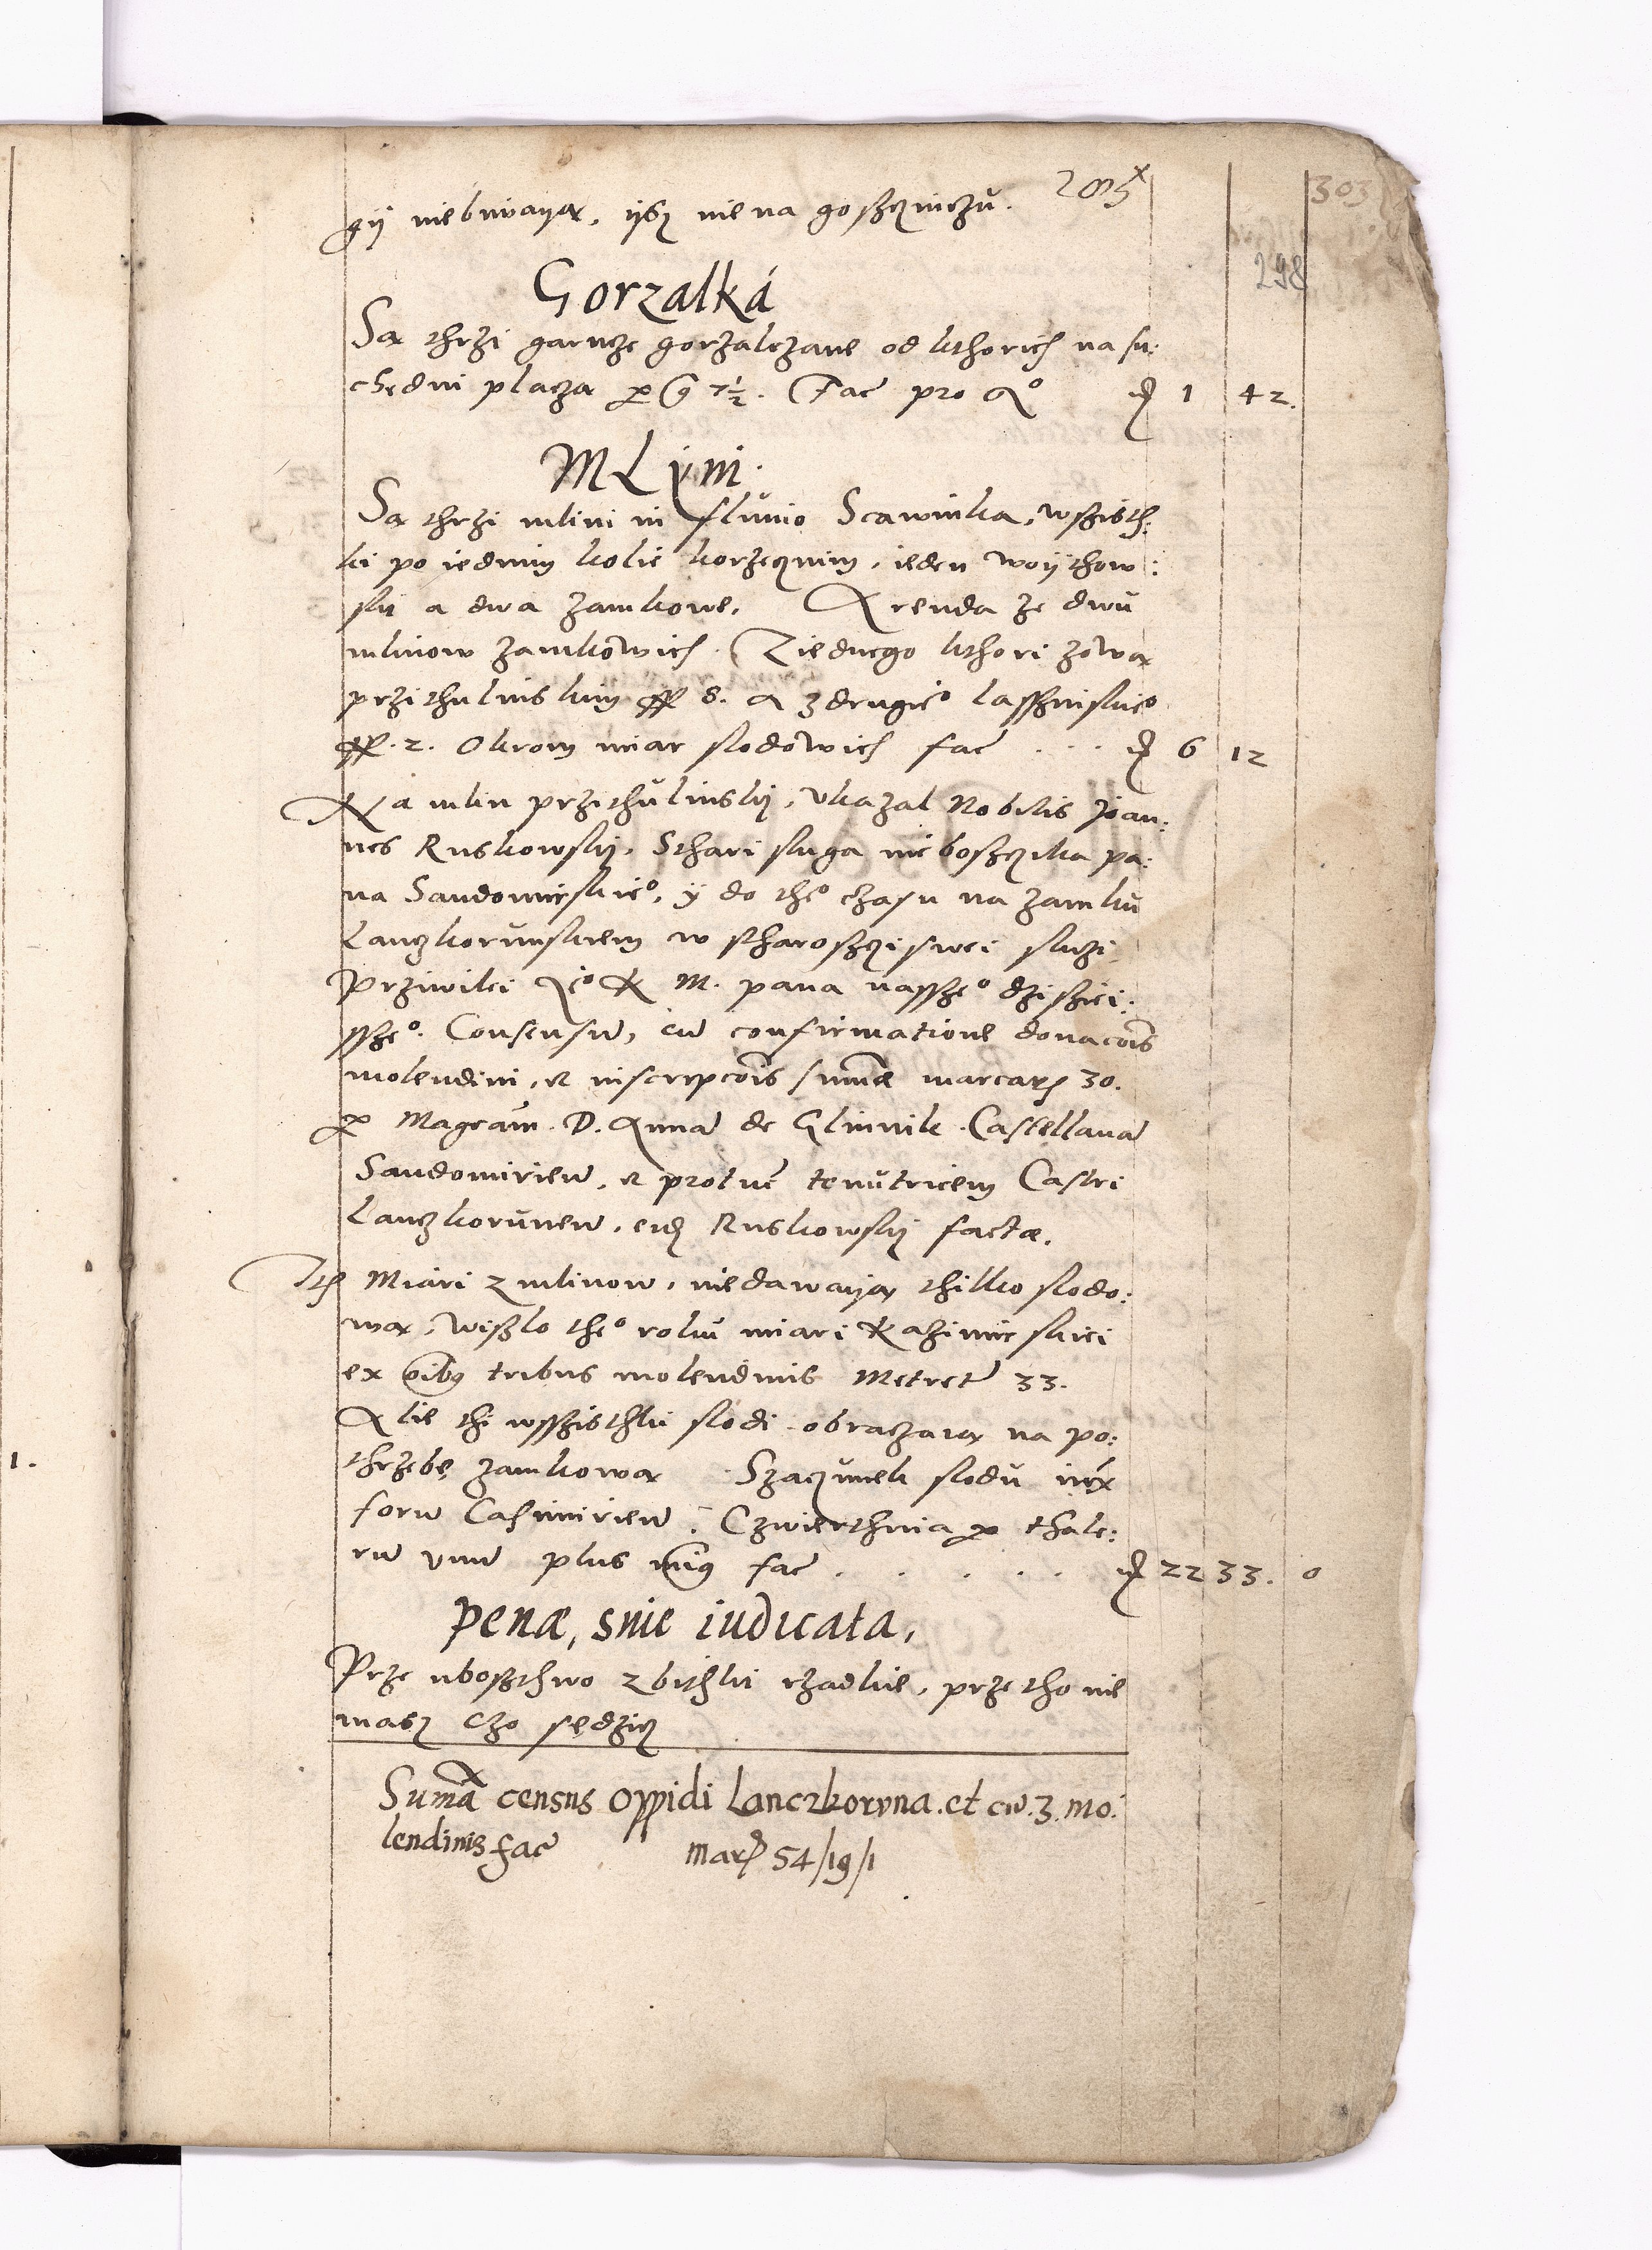 303
298
gij niebiwayą, ijsz nie na gosczinczu.
Gorzalká
Są thrzi garncze gorzalczane od kthorich na su:
chedni placzą per gr 7½. Fac pro Ao 1 42.
MLyni.
Są thrzi mlini in fluvio Scawinka, wszisth:
ki po iednim kolie korzecznim, ieden woijthow:
ski a dwa zamkowe. Arenda ze dwu
mlinow zamkowich. Ziednego kthori zową
przithulinskim 8. a z drugieo lasszniskieo
2. Okrom miar slodowich fac . . . 6 12
Na mlin przithulinskij, vkazal Nobilis Joan:
nes Ruskowskij, Sthari sluga nieboszczika pa:
na Sandomirskieo, ÿ do theo czasu na zamku
Lanczkorunskiem w scharosczi swei sluzi
Prziwilei Jeo K M. pana nasszeo dzisziei:
sszeo. Consensu, cu confirmatione donacois
molendini, et inscripcois summe marcarz 30.
per Magcam. D. Anna de Glinnik Castellana
Sandomirien, et protunc tenutricem Castri
Lanczkorunen, eidz Ruskowskij factæ.
Ith Miari z mlinow, niedawayą thilko slodo:
wą, wiszlo theo roku miari Kazimirskiei
ex oibus tribus molendinis Metret 33.
Alie thi wsszisthki slodi obraczaią na po:
thrzebe zamkową Szaczunek slodu iux
foru Casimirien. Czwierthnia per thale:
ru vnu plus mig fac . . . . . 22 33. 0
Penæ, snie iudicata,
Prze ubosthwo zbithki rzadkie, prze tho nie
masz Czo sędzicz
Sumã census oppidi Lanczkorvna. et cu. 3. mo:
lendinis fac mar 54/19/1
1.